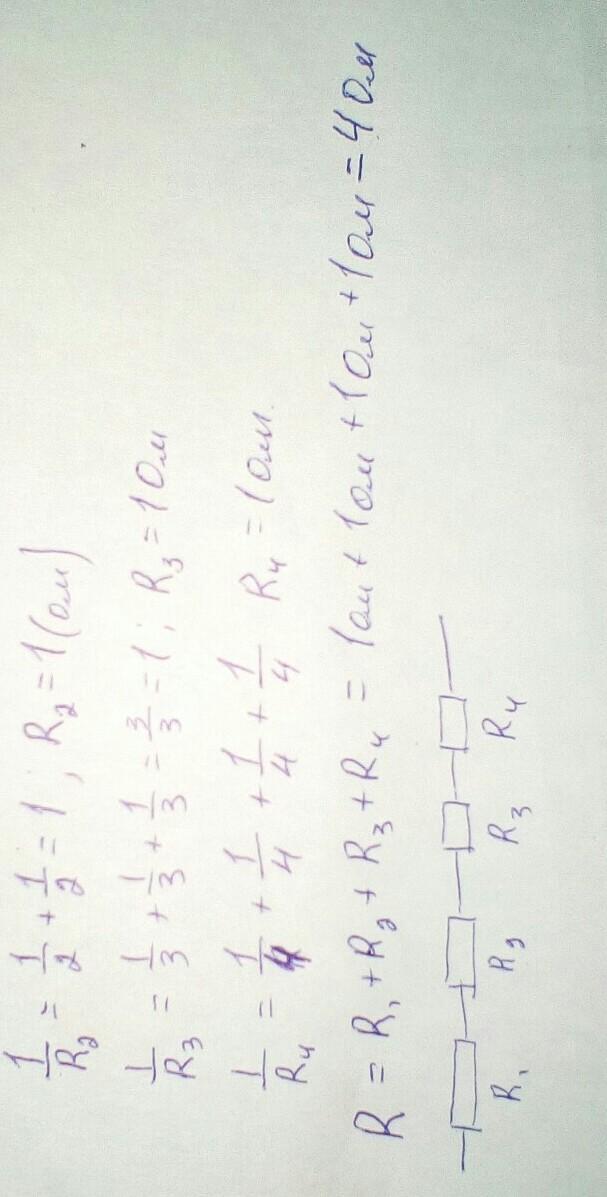 1/R2 = 1/2 + 1/2 = 1 ; R2 = 1(ом)
1/R3 = 1/3 + 1/3 + 1/3 = 3/3 = 1 ; R3 = 1 Ом
1/R4 = 1/4 + 1/4 + 1/4 + 1/4 R4 = 1 Ом.
R = R1 + R2 + R3 + R4 = 1 ом + 1 Ом + 1 Ом + 1 Ом = 4 Ом
R1 R2 R3 R4